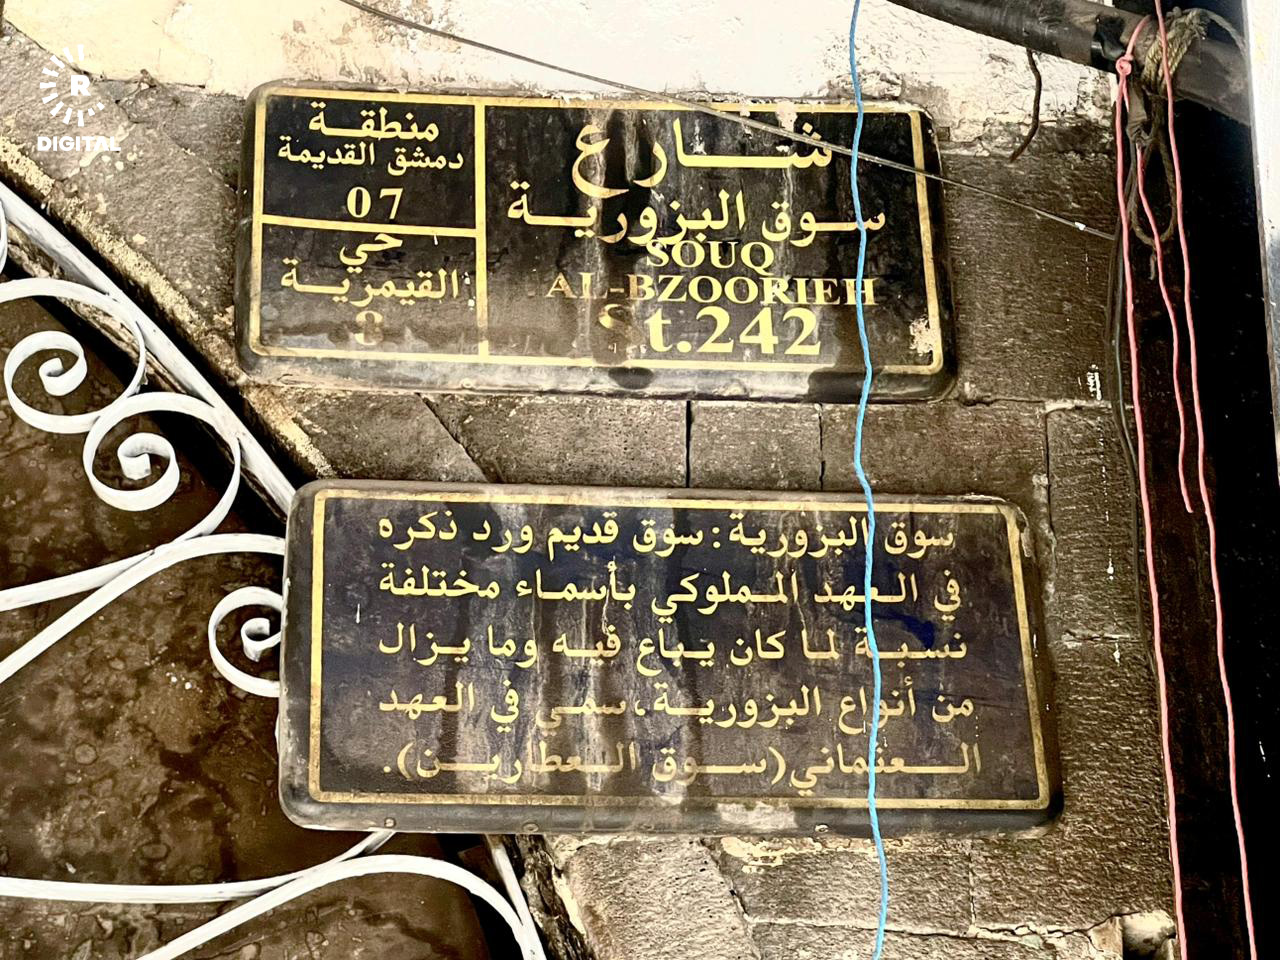 شارع
سوق البزورية
SOUQ
AL-BZOORIEH
St.242
منطقة
دمشق القديمة
07
حي
القيمرية
8
سوق البزورية: سوق قديم ورد ذكره
في العهد المملوكي بأسماء مختلفة
نسبة لما كان يباع فيه وما يزال
من أنواع البزورية، سمي في العهد
العثماني (سوق العطارين).
R
DIGITAL